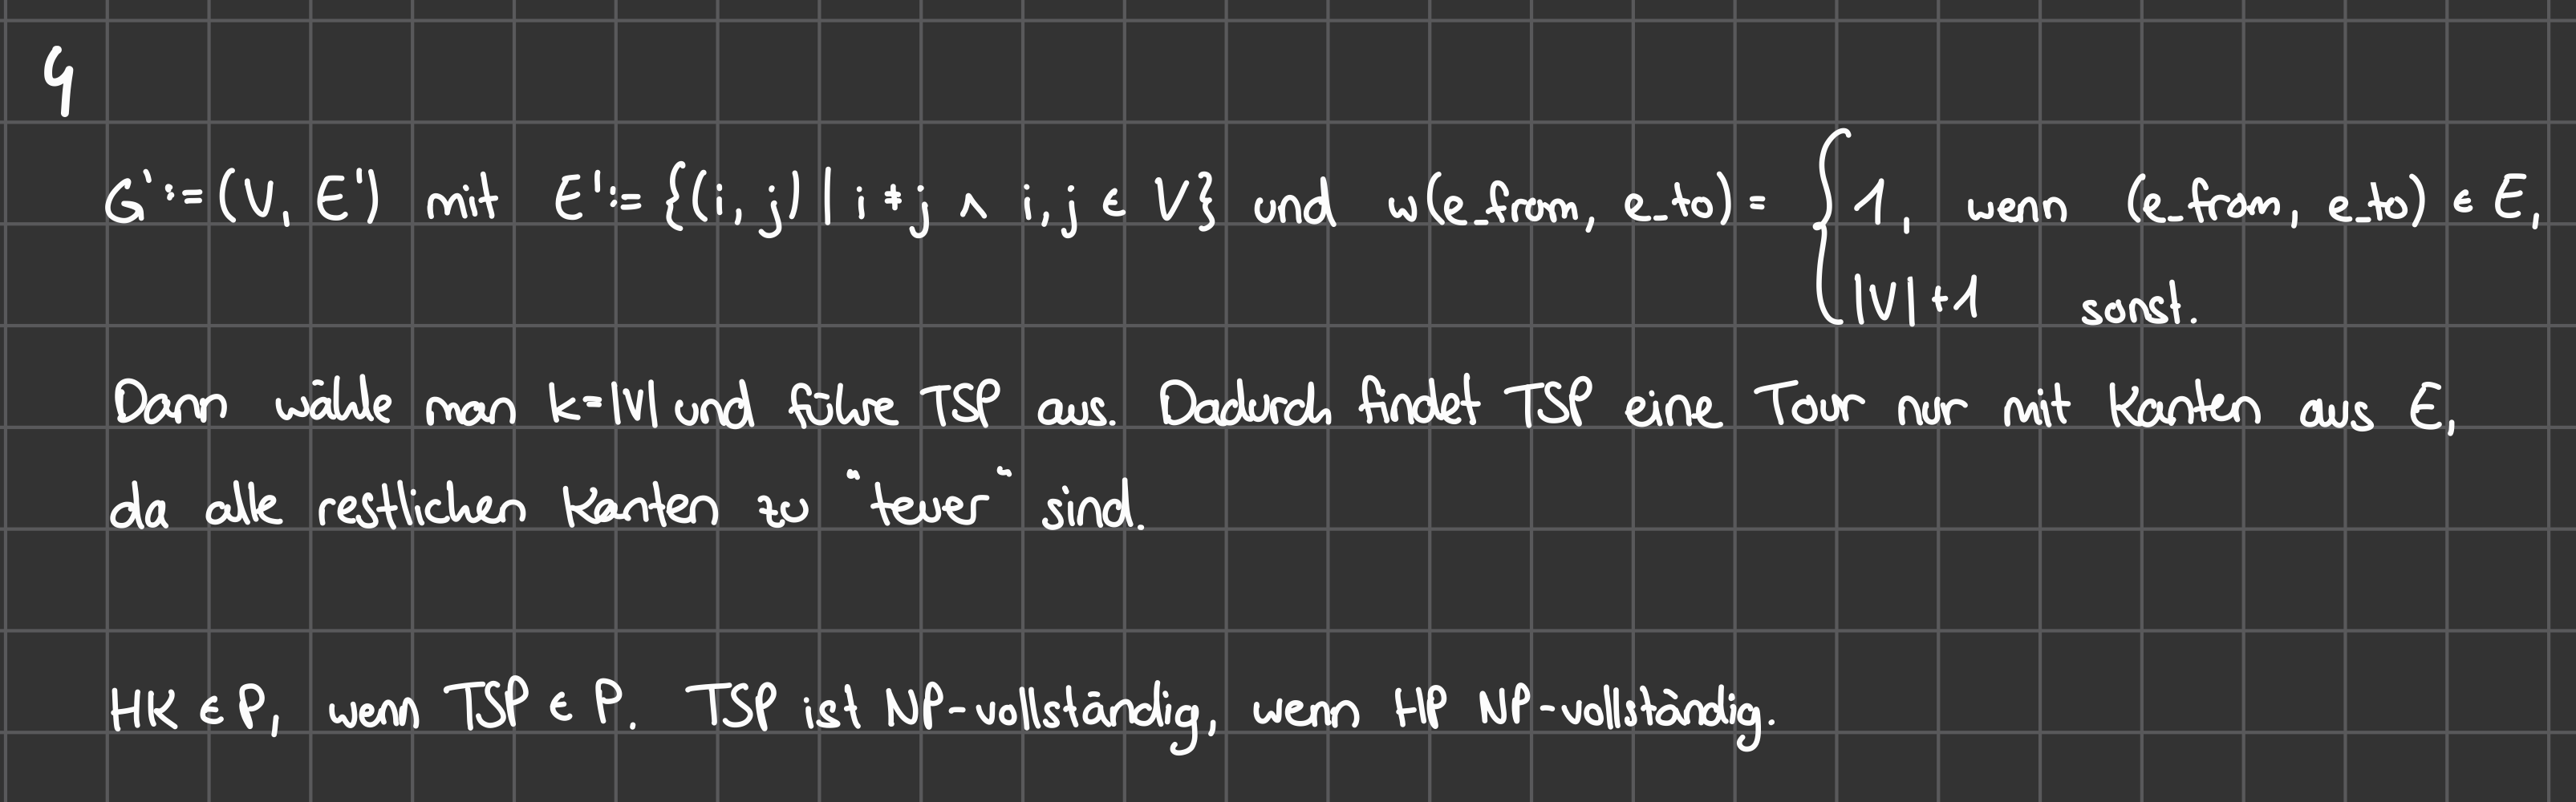 4
G' := (V, E') mit E' := {(i, j) | i ≠ j ∧ i, j ∈ V} und w(e_from, e_to) = { 1, wenn (e_from, e_to) ∈ E,
|V| + 1 sonst.
Dann wähle man k=|V| und führe TSP aus. Dadurch findet TSP eine Tour nur mit Kanten aus E,
da alle restlichen Kanten zu "teuer" sind.
HK ∈ P, wenn TSP ∈ P. TSP ist NP-vollständig, wenn HP NP-vollständig.